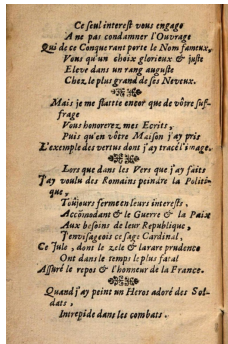 Ce seul interest vous engage
A ne pas condamner l'Ouvrage
Qui de ce Conquerant porte le Nom fameux,
Vous qu'un choix glorieux & juste
Eleve dans un rang auguste
Chez le plus grand de ses Neveux.
Mais je me flatte encor que de vôtre suf-
frage
Vous honorerez mes Ecrits,
Puis qu'en vôtre Maison j'ay pris
L'exemple des vertus dont j'ay tracé l'image.
Lors que dans les Vers que j'ay faits
J'ay voulu des Romains peindre la Politi-
que,
Toûjours ferme en leurs interests,
Accõmodant & le Guerre & la Paix
Aux besoins de leur Republique,
J'envisageois ce sage Cardinal,
Ce Jule, dont le zele & la rare prudence
Ont dans le temps le plus fatal
Assuré le repos & l'honneur de la France.
Quand j'ay peint un Heros adoré des Sol-
dats,
Intrepide dans les combats,